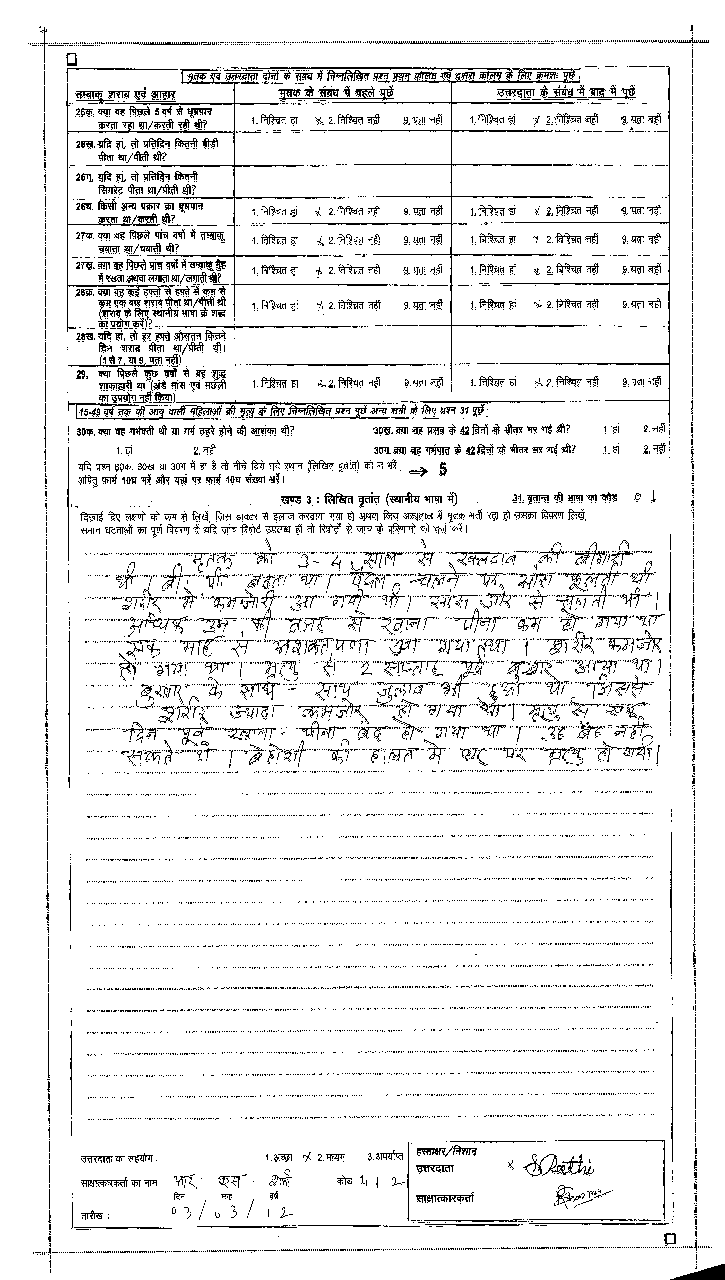 मृतक एवं उत्तरदाता दोनों के संबंध में निम्नलिखित प्रश्न प्रथम कॉलम एवं दूसरा कॉलम के लिए क्रमशः पूछें
तम्बाकू शराब एवं आहार मृतक के संबंध में पहले पूछें उत्तरदाता के संबंध में बाद में पूछें
26क. क्या वह पिछले 5 वर्ष से धूम्रपान
करता रहा था/करती रही थी? 1. निश्चित हां x 2. निश्चित नहीं 9. पता नहीं 1. निश्चित हां x 2. निश्चित नहीं 9. पता नहीं
26ख. यदि हां, तो प्रतिदिन कितनी बीड़ी
पीता था/पीती थी?
26ग. यदि हां, तो प्रतिदिन कितनी
सिगरेट पीता था/पीती थी?
26घ. किसी अन्य प्रकार का धूम्रपान
करता था/करती थी? 1. निश्चित हां x 2. निश्चित नहीं 9. पता नहीं 1. निश्चित हां x 2. निश्चित नहीं 9. पता नहीं
27क. क्या वह पिछले पांच वर्षों में तम्बाकू
चबाता था/चबाती थी? 1. निश्चित हां x 2. निश्चित नहीं 9. पता नहीं 1. निश्चित हां x 2. निश्चित नहीं 9. पता नहीं
27ख. क्या वह पिछले पांच वर्षों में तम्बाकू मुंह
में रखता अथवा लगाता था/लगाती थी? 1. निश्चित हां x 2. निश्चित नहीं 9. पता नहीं 1. निश्चित हां x 2. निश्चित नहीं 9. पता नहीं
28क. क्या वह कई हफ्तों से हफ्ते में कम से
कम एक बार शराब पीता था/पीती थी
(शराब के लिए स्थानीय भाषा के शब्द
का प्रयोग करें)? 1. निश्चित हां x 2. निश्चित नहीं 9. पता नहीं 1. निश्चित हां x 2. निश्चित नहीं 9. पता नहीं
28ख. यदि हां, तो हर हफ्ते औसतन कितने
दिन शराब पीता था/पीती थी।
(1 से 7, या 9, पता नहीं)
29. क्या पिछले कुछ वर्षों से वह शुद्ध
शाकाहारी था (अंडे मांस एवं मछली
का उपयोग नहीं किया) 1. निश्चित हां x 2. निश्चित नहीं 9. पता नहीं 1. निश्चित हां x 2. निश्चित नहीं 9. पता नहीं
15-49 वर्ष तक की आयु वाली महिलाओं की मृत्यु के लिए निम्नलिखित प्रश्न पूछें अन्य सभी के लिए प्रश्न 31 पूछें
30क. क्या वह गर्भवती थी या गर्भ ठहरे होने की आशंका थी? 30ख. क्या वह प्रसव के 42 दिनों के भीतर मर गई थी? 1. हां 2. नहीं
1. हां 2. नहीं 30ग. क्या वह गर्भपात के 42 दिनों के भीतर मर गई थी? 1. हां 2. नहीं
यदि प्रश्न 30क, 30ख या 30ग में हां है तो नीचे दिये गये स्थान (लिखित वृतांत) को न भरें → 5
अपितु फार्म 10घ भरें और यहां पर फार्म 10घ संख्या भरें।
खण्ड 3 : लिखित वृतांत (स्थानीय भाषा में) 31. वृतान्त की भाषा का कोड 0 1
दिखाई दिए लक्षणों को क्रम से लिखें, जिस डाक्टर से इलाज करवाया गया हो अथवा जिस अस्पताल में मृतक भर्ती रहा हो उसका विवरण लिखें,
मृतक को 3-4 साल से रक्तदाब की बीमारी
थी। बी. पी बढ़ता था। पैदल चलने पर सांस फूलती थी
शरीर में कमजोरी आ गयी थी। सांस जोर से चलती थी।
अत्यधिक उम्र की वजह से खाना पीना कम हो गया था
एक माह से अशक्तपणा आ गया था। शरीर कमजोर
हो गया था। मृत्यु से 2 सप्ताह पूर्व बुखार आया था।
बुखार के साथ - साथ जुलाब भी हुआ था। जिससे
शरीर ज्यादा कमजोर हो गया था। मृत्यु से
दिन पूर्व खाना - पीना बंद हो गया था। उठ बैठ नहीं
सकते थे। बेहोशी की हालत में घर पर मृत्यु हो गयी।
उत्तरदाता का सहयोग : 1. अच्छा x 2. मध्यम 3. अपर्याप्त हस्ताक्षर/निशान
उत्तरदाता x S. Rathi
साक्षात्कारकर्ता का नाम आर एस कोड 4 1 2
दिन माह वर्ष साक्षात्कारकर्ता
तारीख : 03/03/12